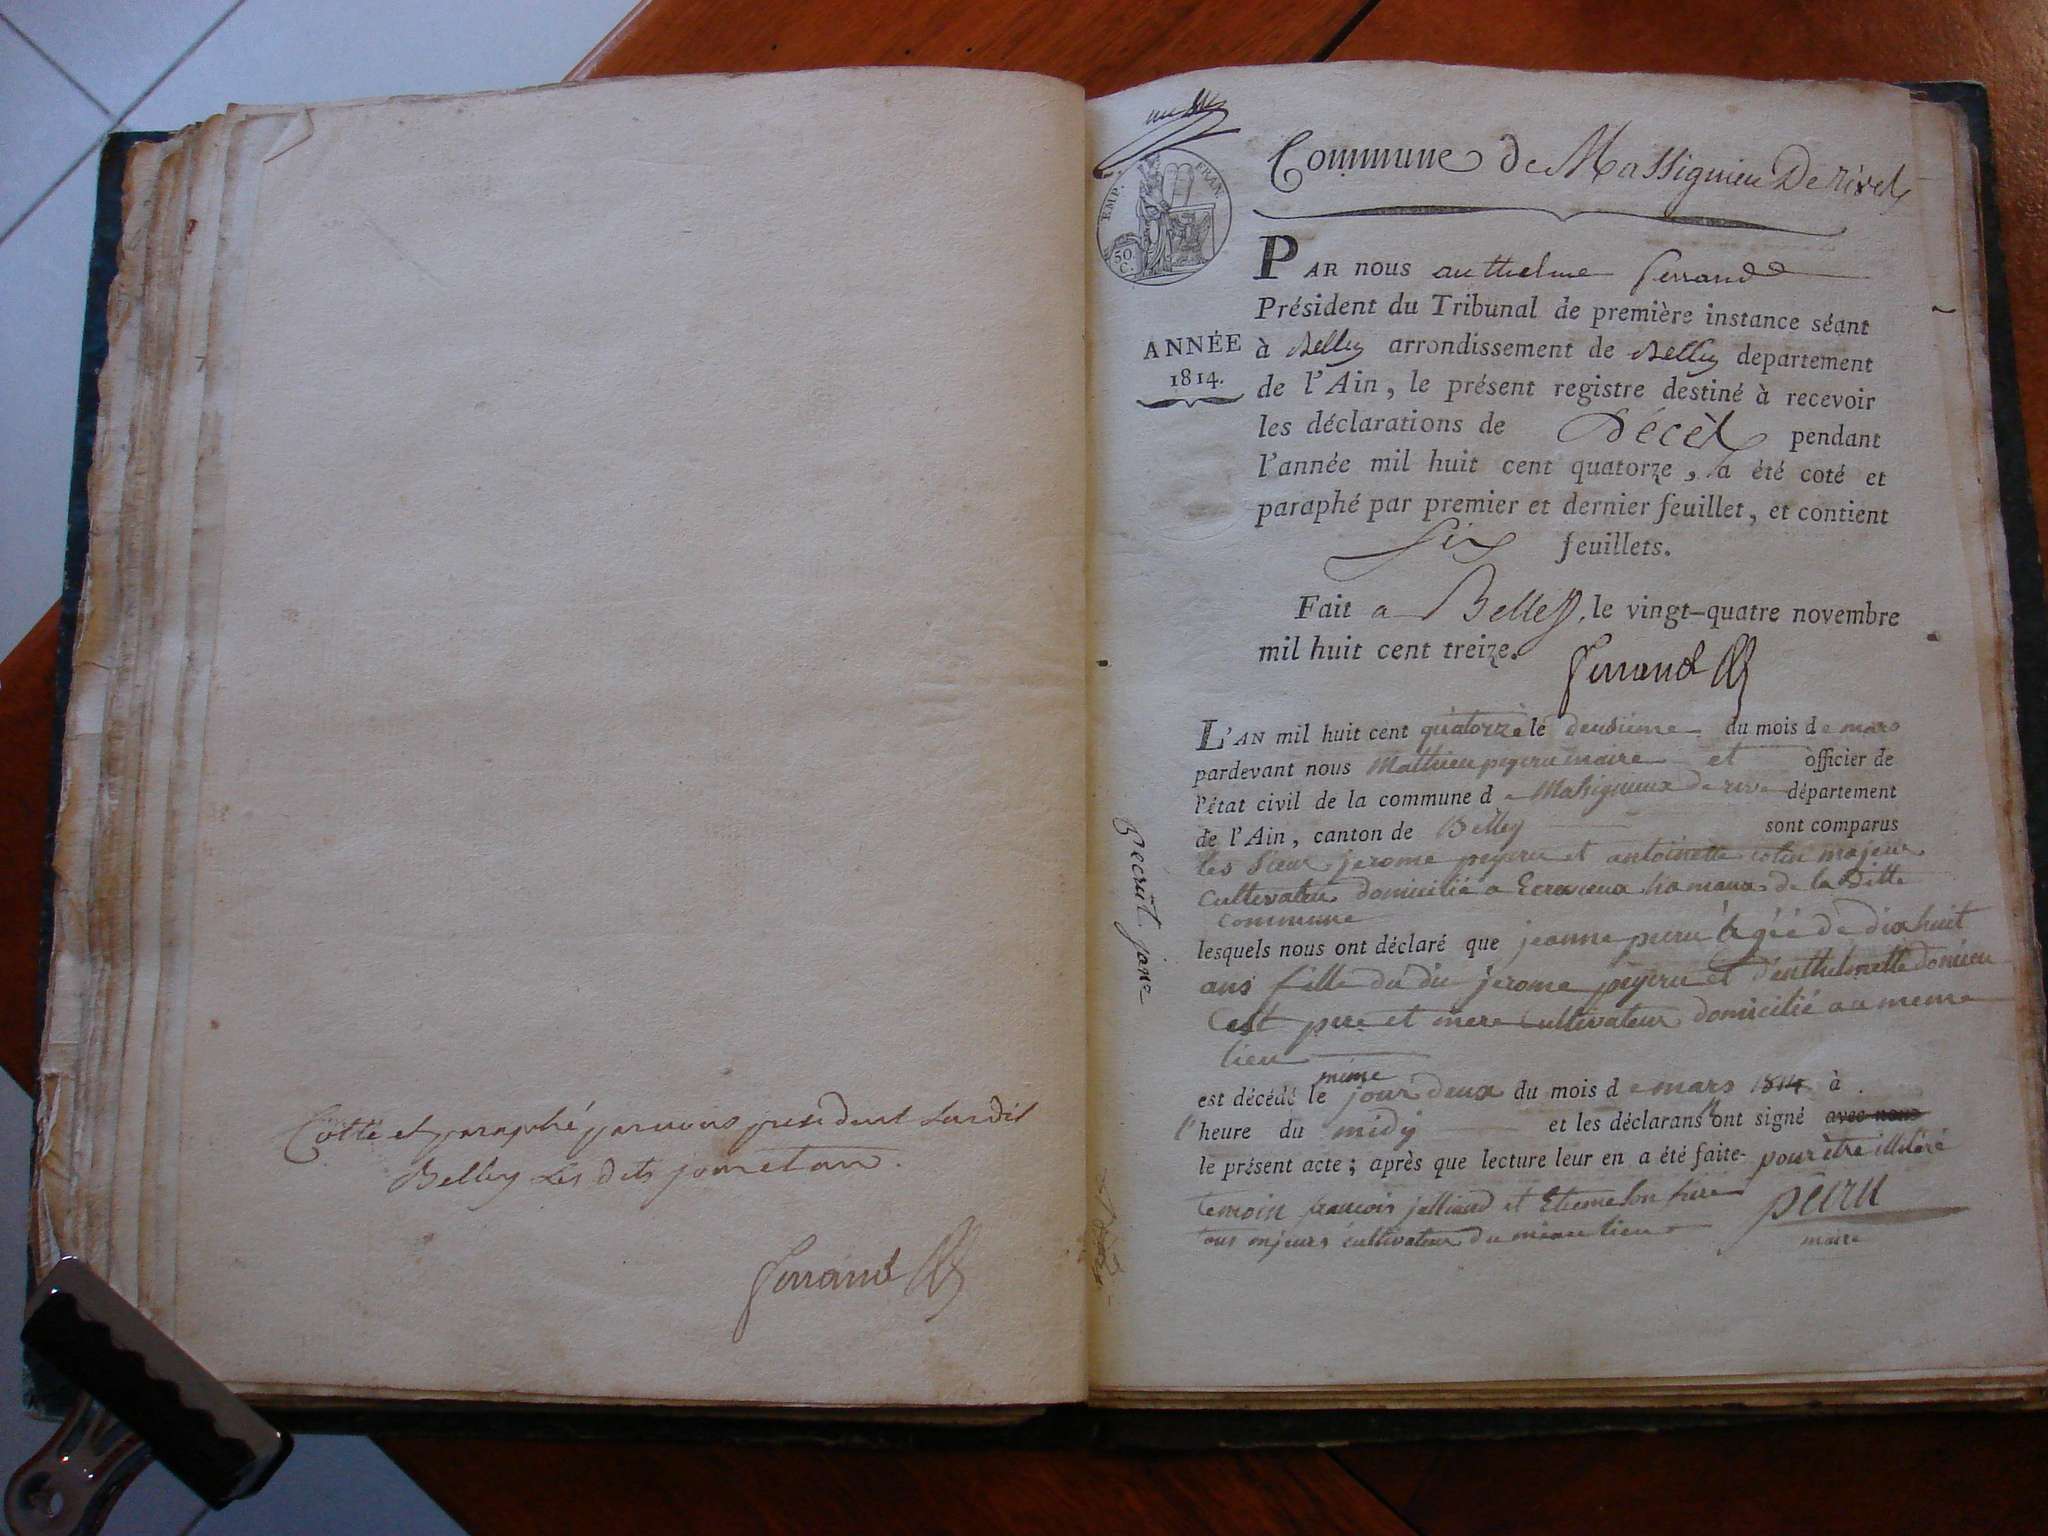 Cotté et paraphé par nous president susdit
Belley les dits jour et an.
Ferrand
EMP. FRAN.
50.
C.
Commune de Massignieu De rives
PAR nous anthelme ferrand
Président du Tribunal de première instance séant
ANNÉE
1814.
à Belley arrondissement de Belley departement
de l'Ain, le présent registre destiné à recevoir
les déclarations de Décès pendant
l'année mil huit cent quatorze, a été coté et
paraphé par premier et dernier feuillet, et contient
Six feuillets.
Fait a Belley, le vingt-quatre novembre
mil huit cent treize.
Ferrand
L'AN mil huit cent quatorze le deusieme du mois de mars
pardevant nous Mathieu peyru maire et officier de
l'état civil de la commune de Massignieux de rive département
de l'Ain, canton de Belley sont comparus
les Sieur jerome peyru et antoinette colin majeur
Cultivateur domicilié a de la ditte
Commune
lesquels nous ont déclaré que jeanne peru agée de dix huit
ans fille du dit jerome peyru et d'enthelmette
Cest pere et mere Cultivateur domicilié au meme
lieu
est décédé le meme jour deux du mois de mars 1814 à
l'heure du midy et les déclarans ont signé avec nous
le présent acte; après que lecture leur en a été faite pour être illitéré
temoin francois julliand et Etienne son frere
tous majeurs cultivateur du meme lieu
peiru
maire